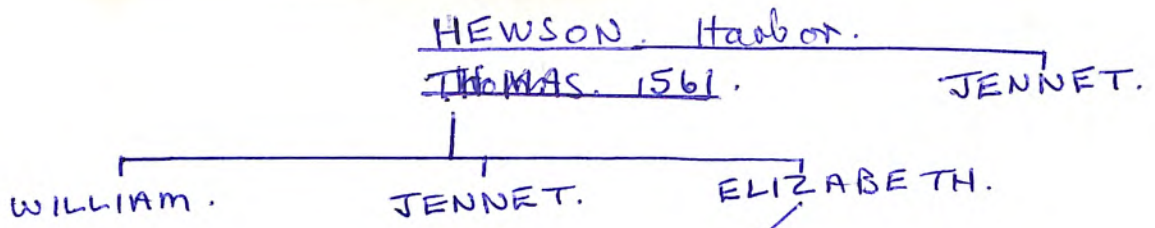 HEWSON. Harbor.
THOMAS. 1561. JENNET.
WILLIAM. JENNET. ELIZABETH.